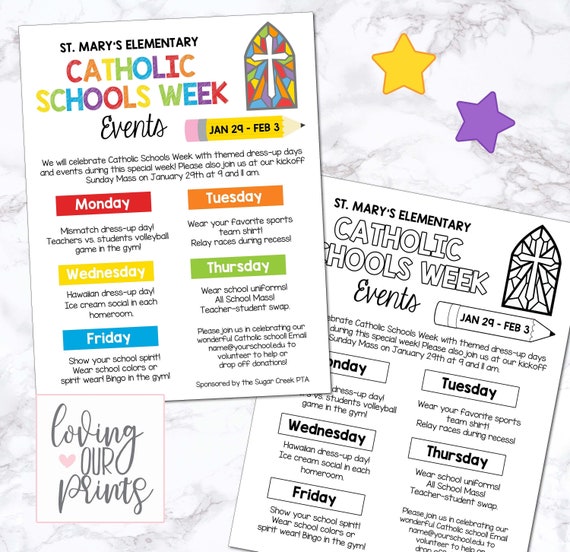 ST. MARY'S ELEMENTARY
CATHOLIC
SCHOOLS WEEK
Events
JAN 29 - FEB 3
We will celebrate Catholic Schools Week with themed dress-up days
and events during this special week! Please also join us at our kickoff
Sunday Mass on January 29th at 9 and 11 am.
Monday
Mismatch dress-up day!
Teachers vs. students volleyball
game in the gym!
Tuesday
Wear your favorite sports
team shirt!
Relay races during recess!
Wednesday
Hawaiian dress-up day!
Ice cream social in each
homeroom.
Thursday
Wear school uniforms!
All School Mass!
Teacher-student swap.
Friday
Show your school spirit!
Wear school colors or
spirit wear! Bingo in the gym!
Please join us in celebrating our
wonderful Catholic school! Email
name@yourschool.edu to
volunteer to help or
drop off donations!
Sponsored by the Sugar Creek PTA
loving
OUR
prints
ST. MARY'S ELEMENTARY
CATHOLIC
SCHOOLS WEEK
Events
JAN 29 - FEB 3
celebrate Catholic Schools Week with themed dress-up days
during this special week! Please also join us at our kickoff
Sunday Mass on January 29th at 9 and 11 am.
Monday
dress-up day!
students volleyball
the gym!
Tuesday
Wear your favorite sports
team shirt!
Relay races during recess!
Wednesday
Hawaiian dress-up day!
Ice cream social in each
homeroom.
Thursday
Wear school uniforms!
All School Mass!
Teacher-student swap.
Friday
Show your school spirit!
Wear school colors or
spirit wear! Bingo in the gym!
Please join us in celebrating our
wonderful Catholic school! Email
name@yourschool.edu to
volunteer to help or
drop off donations!